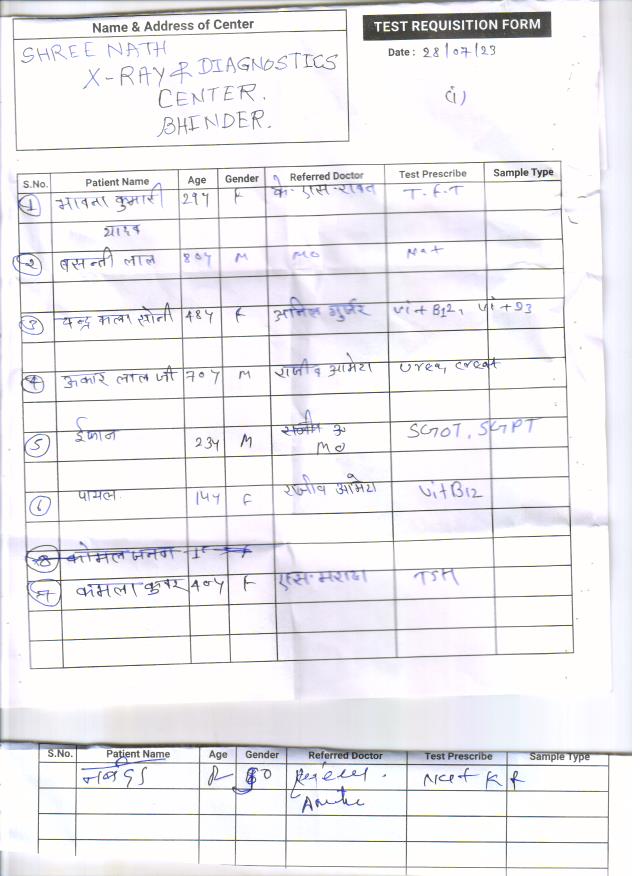 Name & Address of Center
SHREE NATH
X-RAY & DIAGNOSTICS
CENTER.
BHINDER.
TEST REQUISITION FORM
Date : 28/07/23
S.No. Patient Name Age Gender Referred Doctor Test Prescribe Sample Type
1 भावना कुमारी 29y F के. एस. रावत T.F.T
यादव
2 बसन्ती लाल 80y M MO Na+
3 चन्द्र कला सोनी 48y F अनिल गुर्जर Vit B12, Vit D3
4 लाल जी 70y M राजीव आमेटा Urea, creat
5 23y M MO SGOT, SGPT
6 पायल 14y F राजीव आमेटा Vit B12
8 कोमल
7 कमला कुवर 40y F एस. TSH
S.No. Patient Name Age Gender Referred Doctor Test Prescribe Sample Type